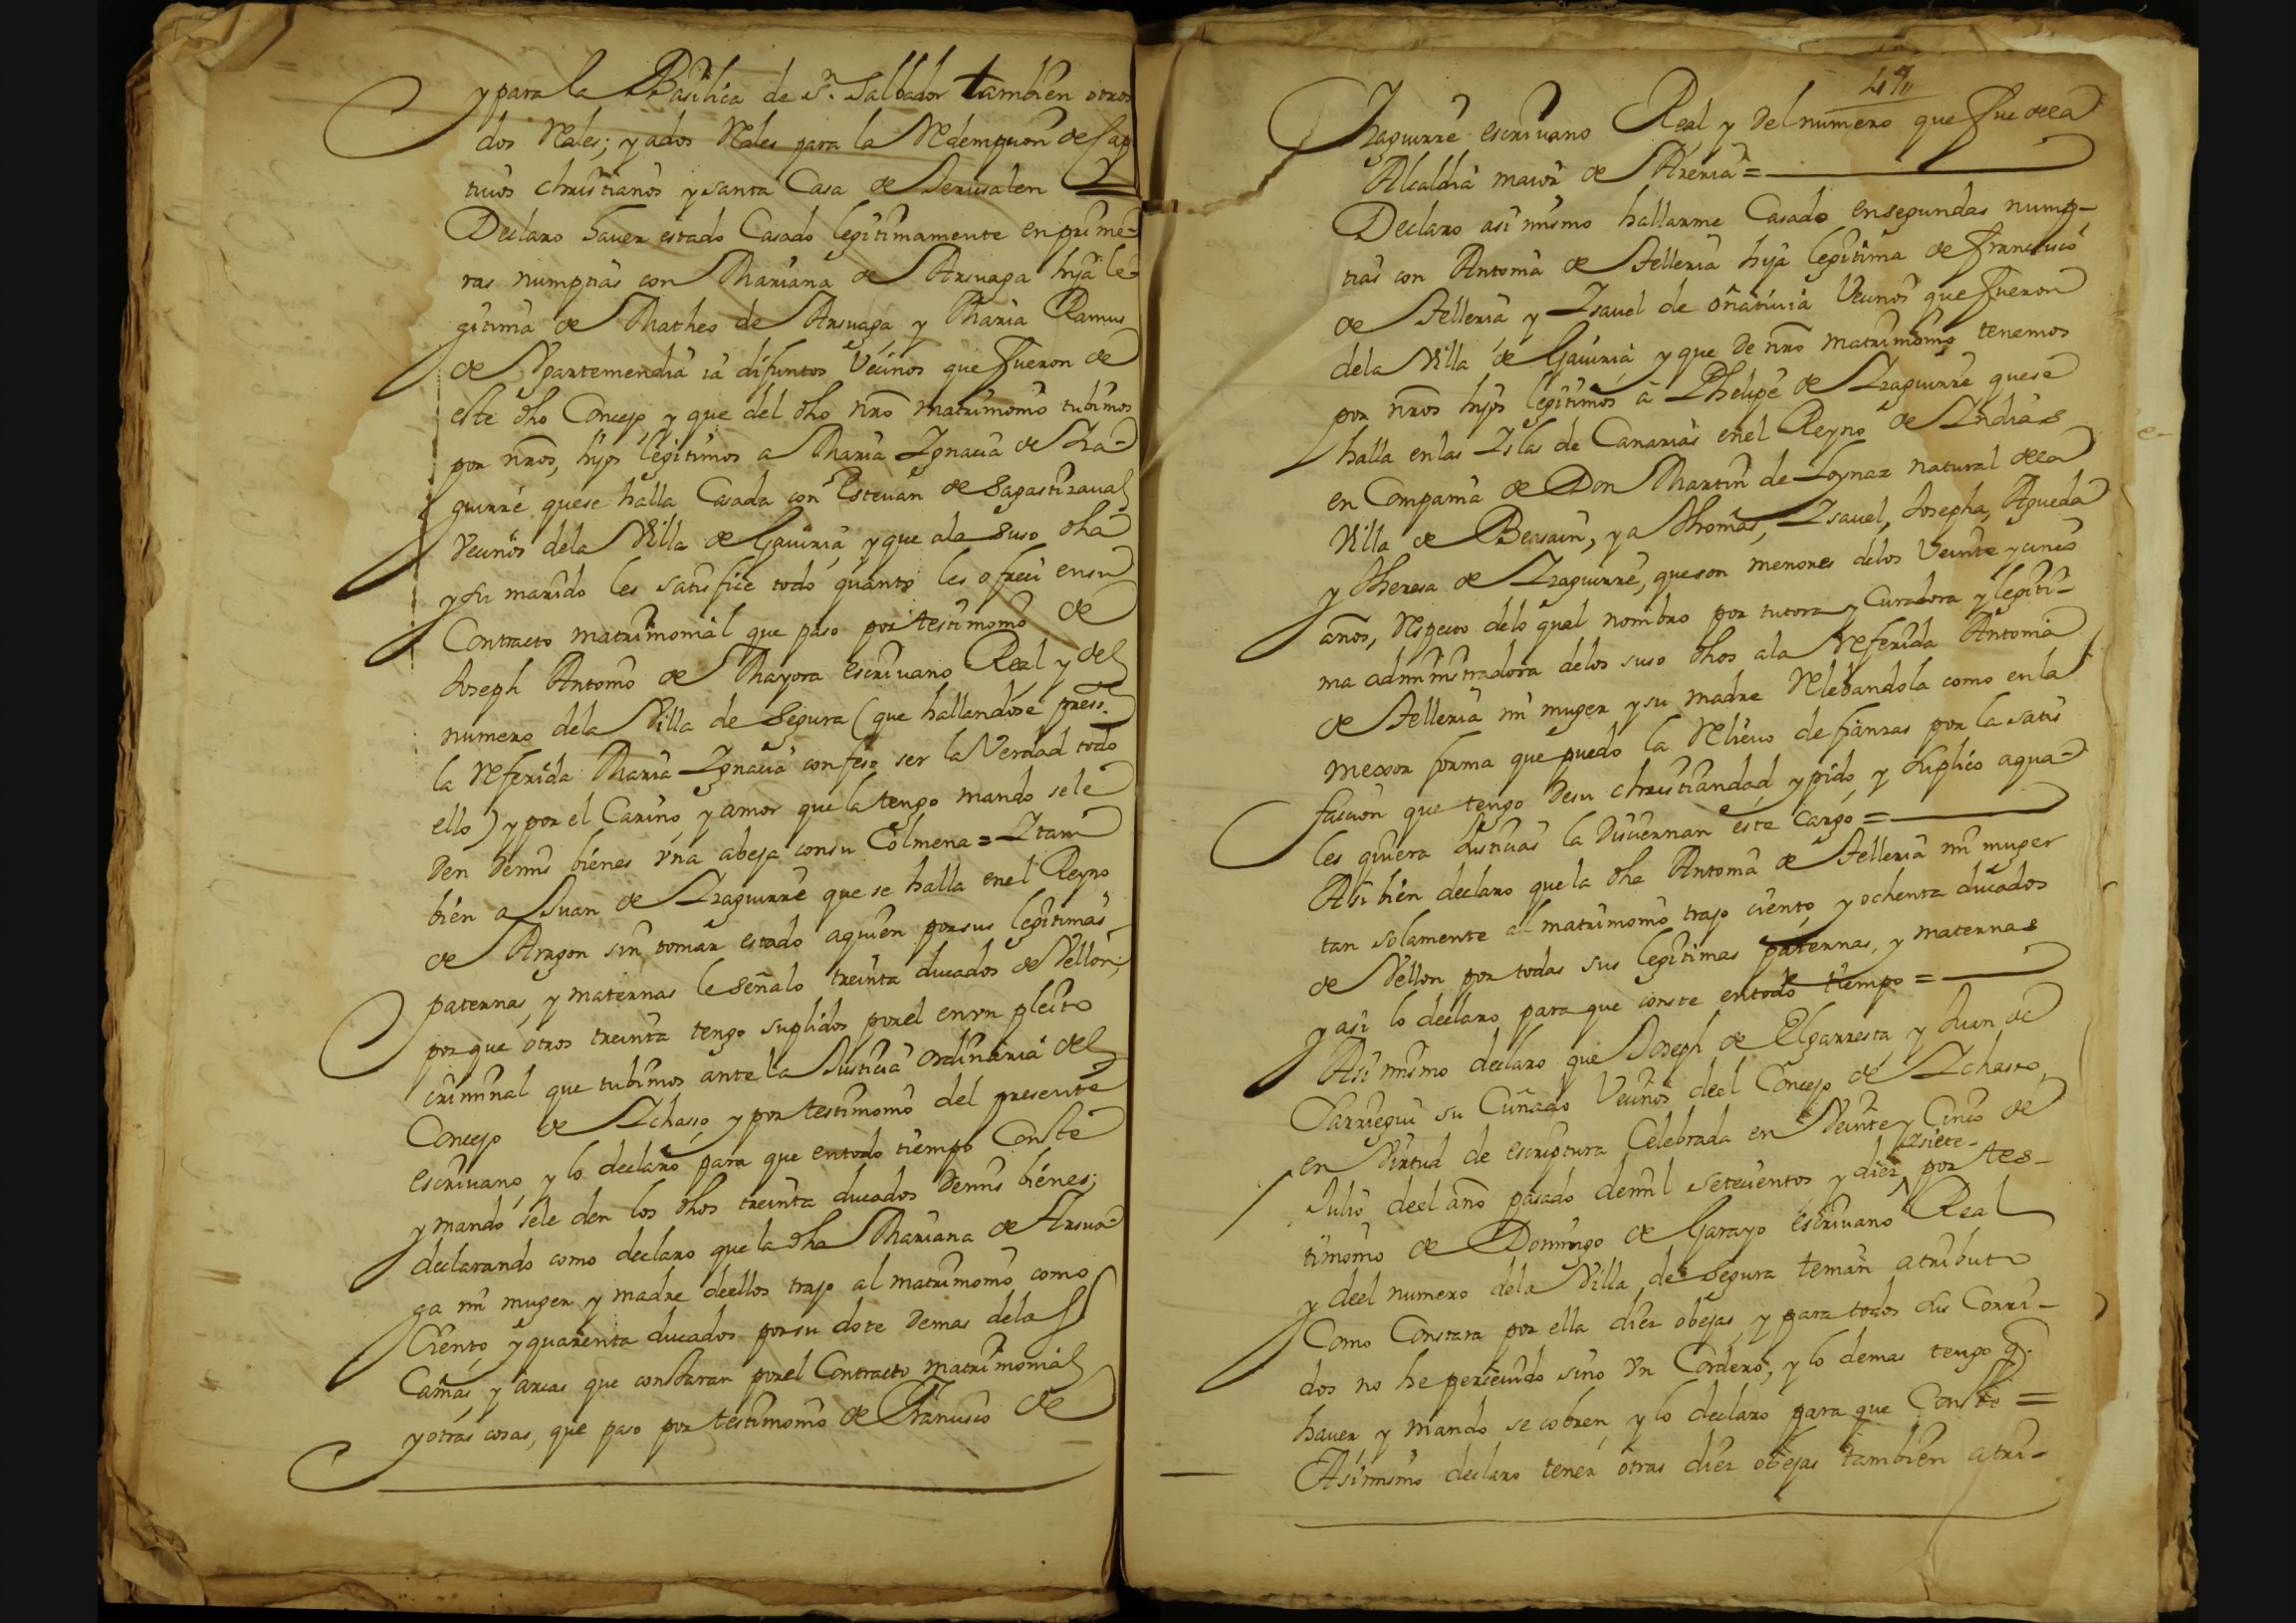 y para la Basilica de Sn. Salbador tambien otros
dos Rales; y a dos Rales para la Redempcion de Cap
tiuos christianos y santa Casa de Jerusalen
Declaro hauer estado Casado legitimamente en prime-
ras numpcias con Mariana de Arsuaga hija le-
gitima de Matheo de Arsuaga y Maria Ramus
de Ypartemendia ia difuntos Vecinos que fueron de
este dho Concejo y que del dho nro matrimonio tubimos
por nros, hijos legitimos a Maria Ignacia de Iza-
guirre que se halla Casada con Esteuan de Sagastizaual
Vecinos dela Villa de Gauiria y que ala suso dha
y su marido les satisfice todo quanto les ofreci en su
Contracto matrimonial que paso por testimonio de
Joseph Antonio de Mayora escriuano Real y del
numero dela Villa de Segura (que hallandose press.te
la Referida Maria Ignacia confeso ser la Verdad todo
ello) y por el Carino y amor que la tengo mando se le
den demis bienes vna abeja consu Colmena = Itam
bien a Juan de Izaguirre que se halla enel Reyno
de Aragon sin tomar estado aquien por sus legitimas
paternas, y maternas le señalo treinta ducados de Vellon;
porque otros treinta tengo suplidos porel en vn pleito
criminal que tubimos ante la Justicia ordinaria del
Concejo de Ichasso y por testimonio del presente
escriuano, y lo declaro para que entodo tiempo Conste
y mando sele den los dhos treinta ducados demis bienes;
declarando como declaro que la dha Mariana de Arsua-
ga mi muger y madre deellos trajo al matrimonio como
Ciento, y quarenta ducados por su dote demas dela
Camas y arcas que constaran porel Contracto matrimonial
y otras cosas, que paso por testimonio de Francisco de
Izaguirre escriuano Real y del numero que fue dela
Alcaldia maior de Areria =
Declaro asi mismo hallarme Casado ensegundas nump-
cias con Antonia de Telleria hija legitima de Francisco
de Telleria y Isauel de oñatiuia Vecinos que fueron
dela Villa de Gauiria y que de nro matrimonio tenemos
por nros hijos legitimos à Phelipe de Izaguirre quese
halla enlas Islas de Canarias enel Reyno de Indias
en Compania de Don Martin de Loynaz natural dela
Villa de Beasain, y a Thomas, Isauel, Josepha, Agueda
y Theresa de Izaguirre, queson menores delos Veinte y cinco
anos, Respecto delo qual nombro por tutora y Curadora y legiti-
ma administradora delos suso dhos ala Referida Antonia
de Telleria mi muger y su madre Relebandola como enla
mexor forma que puedo la Relieuo de fianzas por la satis
facion que tengo desu christiandad y pido, y suplico aqua-
les quiera Justicias la disciernan este cargo =
Asi bien declaro que la dha Antonia de Telleria mi muger
tan solamente al matrimonio trajo ciento y ochenta ducados
de Vellon por todas sus legitimas paternas, y maternas
y asi lo declaro para que conste entodo tiempo =
Asi mismo declaro que Joseph de Elgarresta y Juan de
Larriegui su Cuñado Vecinos deel Concejo de Ichasso,
en Virtud de escriptura Celebrada en Veinte y Cinco de
Julio deel ano pasado demil setecientos y diez ysiete por tes-
timonio de Domingo de Garayo escriuano Real
y deel numero dela Villa de Segura tenian atributo
Como Constara por ella diez obejas y para todos sus Corri-
dos no he perciuido sino vn Cordero, y lo demas tengo q.
hauer y mando se cobren, y lo declaro para que Conste =
Asimismo declaro tener otras diez obejas tambien atri-